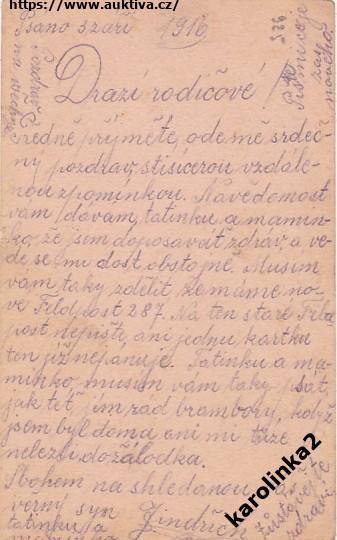 https://www.auktiva.cz/
Psáno 3 září 1916
Drazí rodičové!
Předně přijměte, ode mě srdeč-
ný pozdrav, s tisícerou vzdále-
nou zpomínkou. Na vědomost
vám dávám, tatínku a mamin-
ko, že jsem doposavať zdráv, a ve-
de se mi dost obstojně. Musím
vám taky zdělit že máme no-
vé Feldpost 287. Na ten staré Feld-
post nepište, ani jednu kartku
ten již nepanuje. Tatínku a ma-
minko, musím vám taky psát,
jak teť, jím rád brambory, kobž
jsem byl doma ani mi tíže
nelezli do žalodka.
Sbohem na shledanou, vás
věrný syn Jindřich
tatínku a
maminko
zůstávejte
zdrávi.
Pište mi
zas
nového
karolinka2